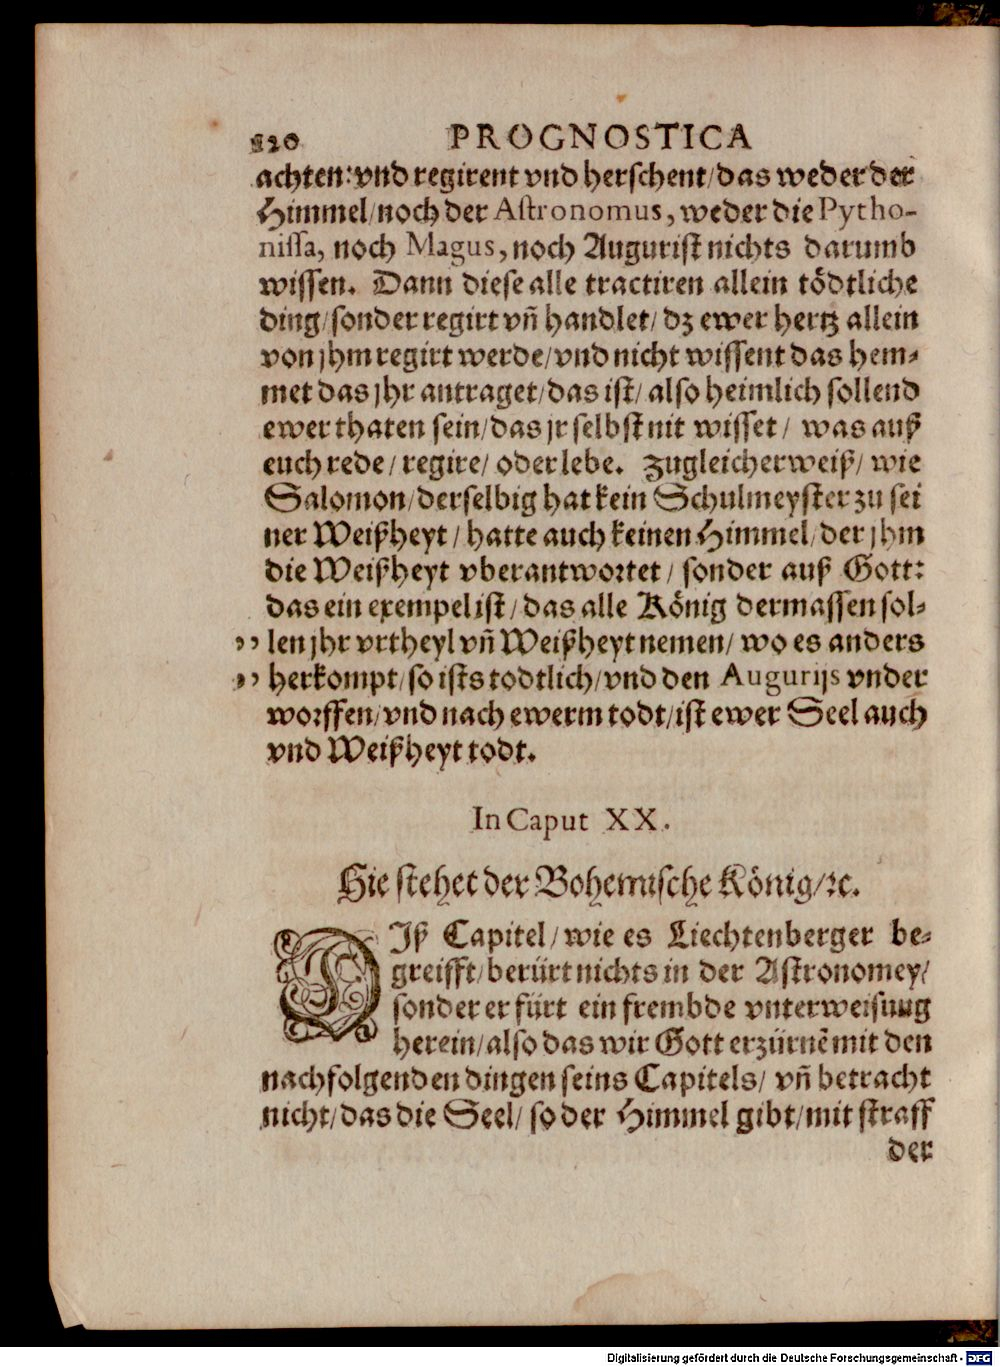 120 PROGNOSTICA
achten: vnd regirent vnd herschent/das weder der
Himmel/noch der Astronomus, weder die Pytho-
nissa, noch Magus, noch Augurist nichts darumb
wissen. Dann diese alle tractiren allein tödtliche
ding/sonder regirt vñ handlet/dz ewer hertz allein
von jhm regirt werde/vnd nicht wissent das hem⸗
met das jhr antraget/das ist/also heimlich sollend
ewer thaten sein/das jr selbst nit wisset/ was auß
euch rede/regire/oder lebe. Zugleicherweiß/wie
Salomon/derselbig hat kein Schulmeyster zu sei
ner Weißheyt/hatte auch keinen Himmel/der jhm
die Weißheyt vberantwortet/sonder auß Gott:
das ein exempel ist/das alle König dermassen sol⸗
,, len jhr vrtheyl vñ Weißheyt nemen/wo es anders
,, herkompt/so ists todtlich/vnd den Augurijs vnder
worffen/vnd nach ewerm todt/ist ewer Seel auch
vnd Weißheyt todt.
In Caput XX.
Hie stehet der Bohemische König/ꝛc.
DIß Capitel/wie es Liechtenberger be⸗
greifft/berürt nichts in der Astronomey/
sonder er fürt ein frembde vnterweisung
herein/also das wir Gott erzürnẽ mit den
nachfolgenden dingen seins Capitels/vñ betracht
nicht/das die Seel/so der Himmel gibt/mit straff
der
Digitalisierung gefördert durch die Deutsche Forschungsgemeinschaft - DFG